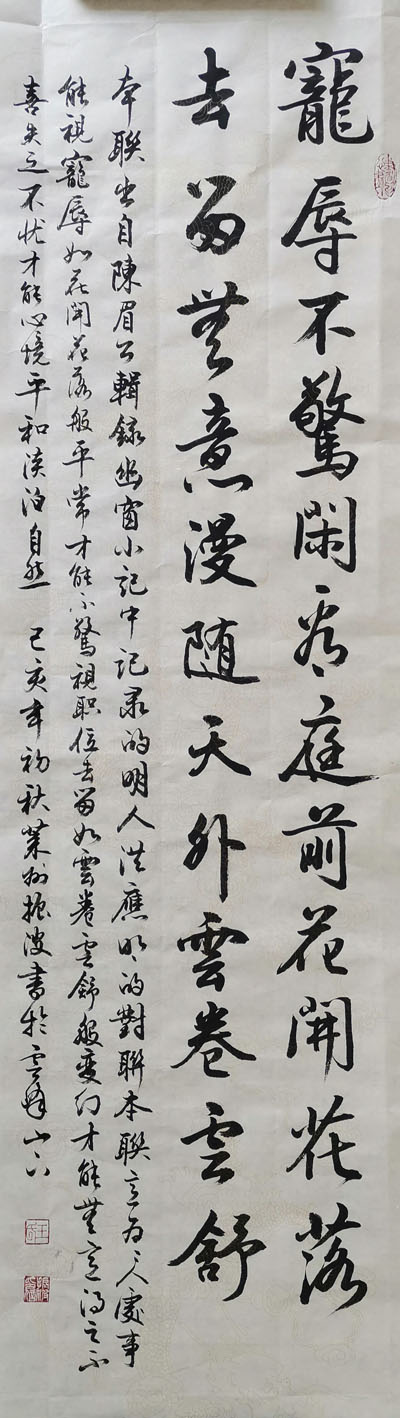 寵辱不驚閑看庭前花開花落
去留無意漫随天外雲卷雲舒
本聯出自陳眉公輯録幽窗小記中記录的明人洪應明的對聯本聯意为人處事
能視寵辱如花開花落般平常才能不驚視职位去留如雲卷雲舒般变幻才能無意得之不
喜失之不忧才能心境平和淡泊自然 己亥年初秋莱州振波書於雲峰山下